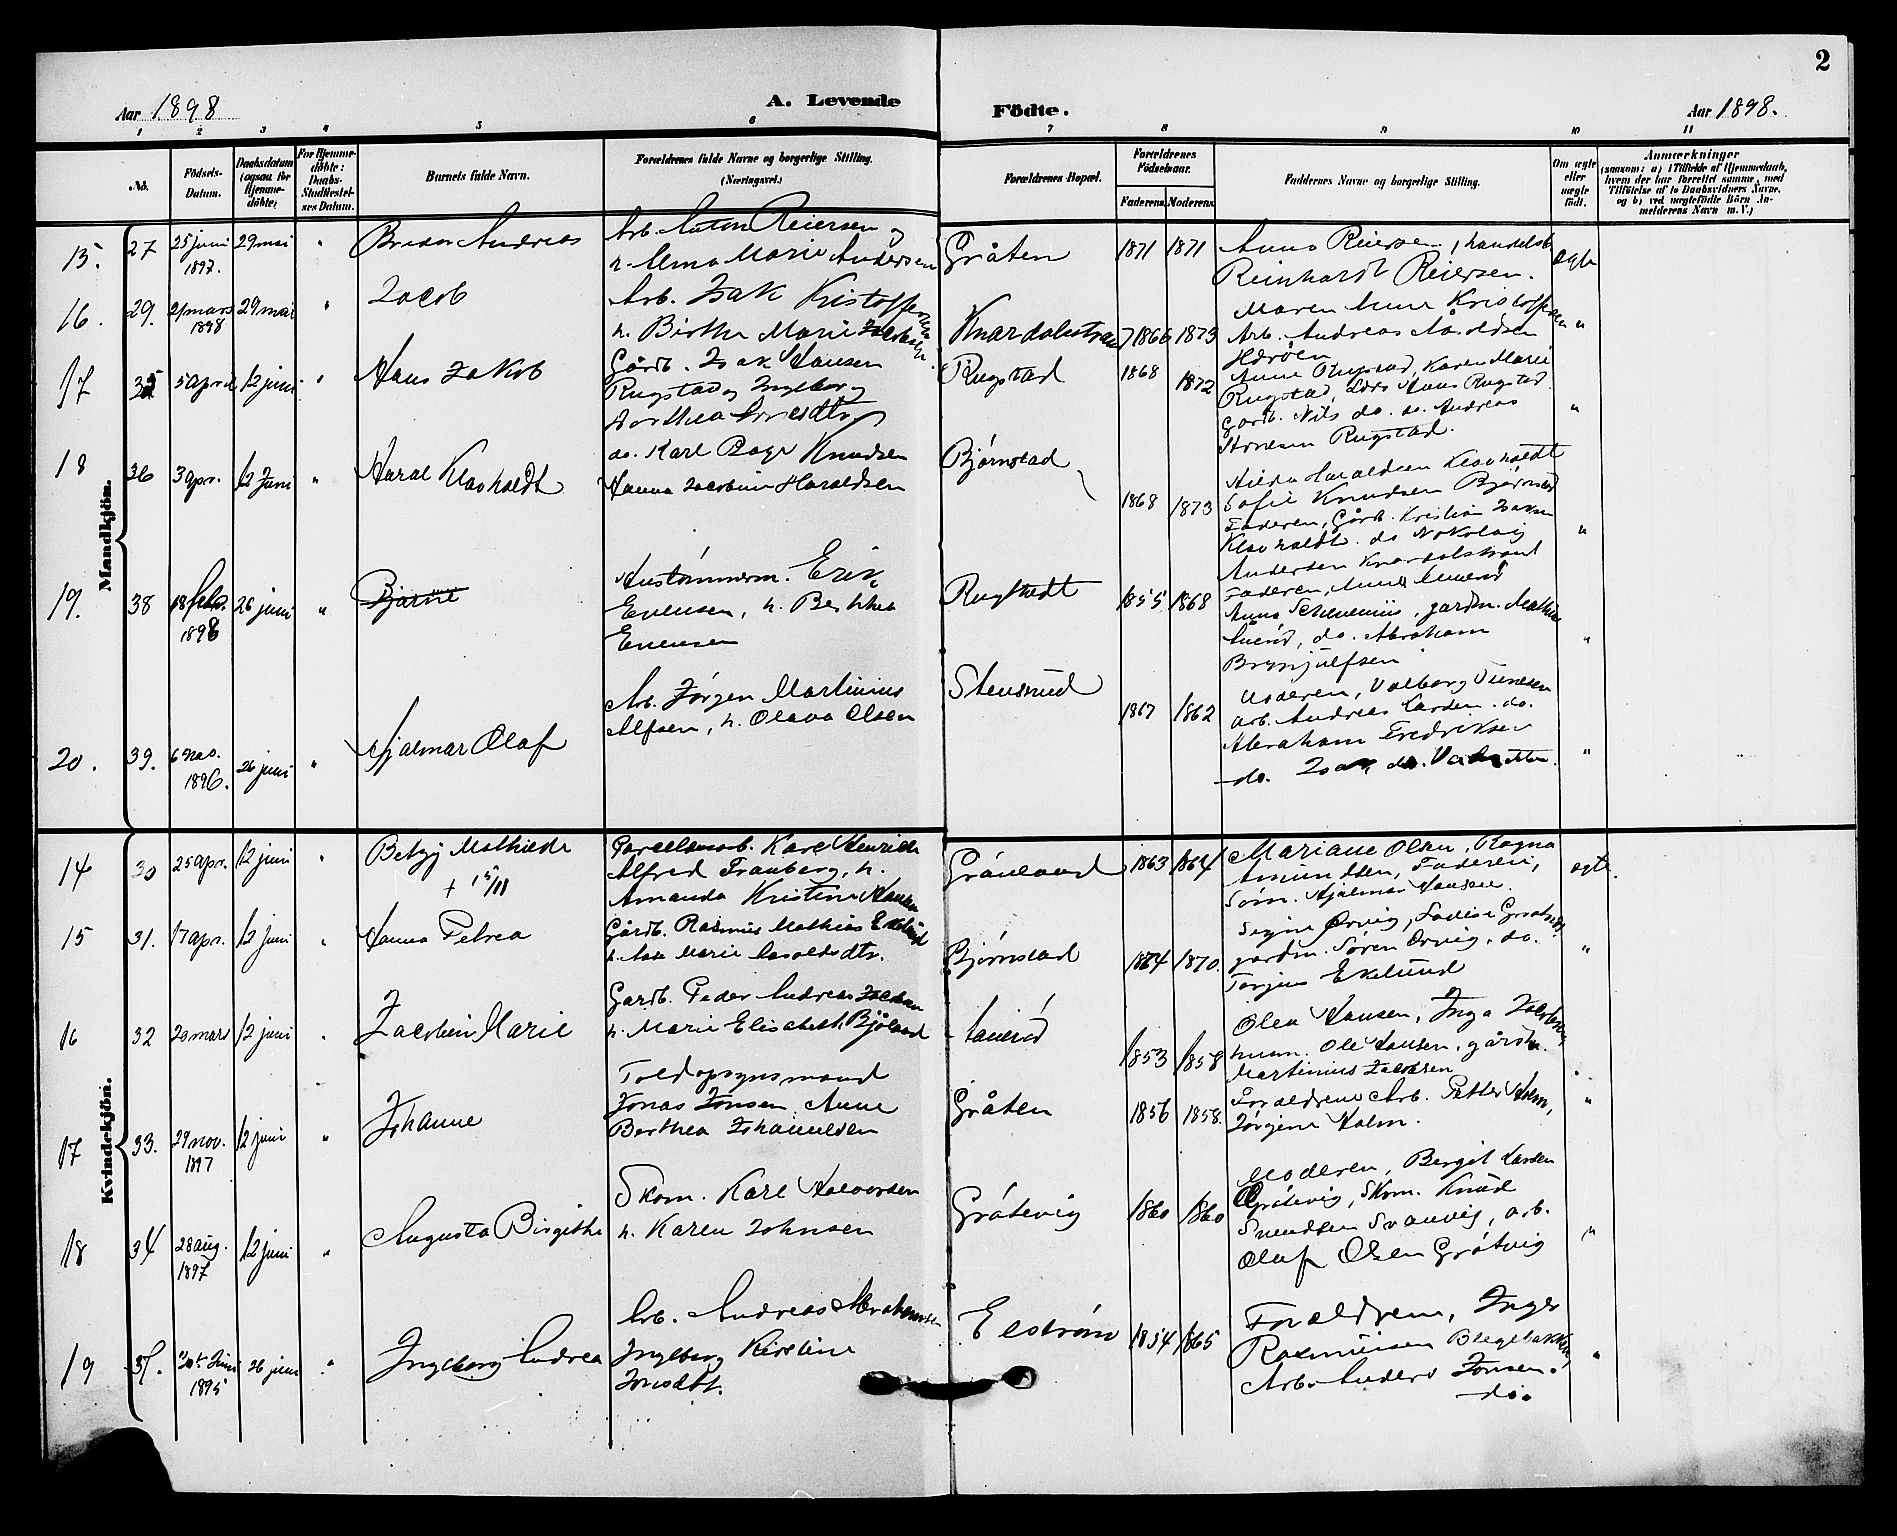 2
Aar 1898
A. Levende
Födte.
Aar 1898.
1 2 3 4 5 6 7 8 9 10 11
No.
Födsels-Datum.
Daabsdatum (ogsaa for Hjemme-döbte)
For Hjemme-döbte: Daabs-Stadfæstel-ses Datum.
Barnets fulde Navn.
Forældrenes fulde Navne og borgerlige Stilling. (Næringsvei.)
Forældrenes Bopæl.
Forældrenes Födselsaar.
Faderens Moderens
Faddernes Navne og borgerlige Stilling.
Om ægte eller uægte födt.
Anmærkninger
(saasom: a) i Tilfælde af Hjemmedaab, hvem der har forrettet samme, med Tilföielse af to Daabsvidners Navne, og b) ved uægtefödte Börn An-melderens Navn m. V.)
Mandkjön.
15. 27 25 juni 1897. 29 mai " Andreas
Arb. Anton Reiersen og
h. Anna Marie Andersen
Gråten 1871 1871
Anna Reiersen, handelsb.
Reinhardt Reiersen.
ægte
16. 29. 21 mars 1898 29 mai " Jacob
Arb. Isak Kristoffersen
h. Birthe Marie
Knardalstrand 1866 1873
Maren Anne Kristoffersen
Arb. Andreas
Herøen
"
17 35 5 april 12 juni " Hans Jakob
Gårdb. Isak Hansen
Rugstad og Ingeborg
Dorthea
Rugstad 1868 1872
Anne Rugstad, Karen Marie
Rugstad, Lars Hans Rugstad
Gårdb. Nils do. do. Andreas
Rugstad.
"
18 36 3 apr. 12 Juni " Haral Klovholdt
do. Karl Bage Knudsen
Hanna Jacobine Haroldsen
Bjørnstad 1868 1873
Hilda Haraldsen Klovholdt
Sofie Knudsen Bjørnstad
Faderen, Gårdb. Kristian Isaksen
Klovholdt do Nikolai
Andersen Knardalstrand
"
19. 38 18 febr. 1898 26 juni " Bjarne
Hustømmerm. Erik
Evensen, h. Berthea
Evensen
Rugtvedt 1855 1868
Faderen, Anne
Anna, gårdm. Mathias
do. Abraham
Brynjulfsen
"
20. 39. 6 nov. 1896. 26 juni " Hjalmar Olaf
Arb. Jørgen Martinius
Alfsen, h. Olava Olsen
Stensrud 1867 1862
Moderen, Valborg Tunesen
arb. Andreas Larsen. do.
Abraham Fredriksen
do. do.
"
Kvindekjön.
14 30 25 apr. 12 juni " Betzy Mathilde
+ 15/11
Parcellensarb. Karl Henrich
Alfred Franberg, h.
Amanda Kristine Hansen
Grönland 1863 1864
Mariane Olsen, Ragna
Amundsen, Faderen,
Søm. Hjalmar Hansen
ægte.
15 31. 17 apr. 12 juni " Hanna Petrea
Gårdb. Rasmus Mathias Eklund
h. Aase Marie
Bjørnstad 1864 1870.
Signe Ørvig,
gårdm. Søren Ørvig, do.
Torjus Eklund
"
16 32 20 mars 12 juni " Jacobine Marie
Gårdb. Peder Andreas Jacobsen
h. Marie Elisabeth
1853 1858
Olea Hansen, Inga Jacobsen
husm. Ole Hansen, gårdm.
Martinius Jacobsen
"
17 33. 29 nov. 1897 12 juni " Johanne
Toldopsynsmand
Jonas Jonsen, Anne
Berthea Johannesen
Gråten 1856 1858.
Foraldrene Arb. Petter Holm,
Jørgine Holm.
"
18 34 28 aug. 1897 12 juni " Augusta Birgitha
Skom. Karl Halvorsen
h. Karen Johnsen
Gråtevig 1860 1860
Moderen, Bergit Larsen
Gråtevig, Skom. Knud
Svendsen Svanvig, arb.
Olaf Olsen Gråtvig
"
19 37. 30te Juni 1895 26 juni " Ingeborg Andrea
Arb. Andreas Abrahamsen
Ingeborg Kirstine
Jonsdtr.
Elstrøm 1854 1865
Foraldrene, Inger
Rasmussen Blegebakken,
Arb. Anders Jonsen.
do.
"